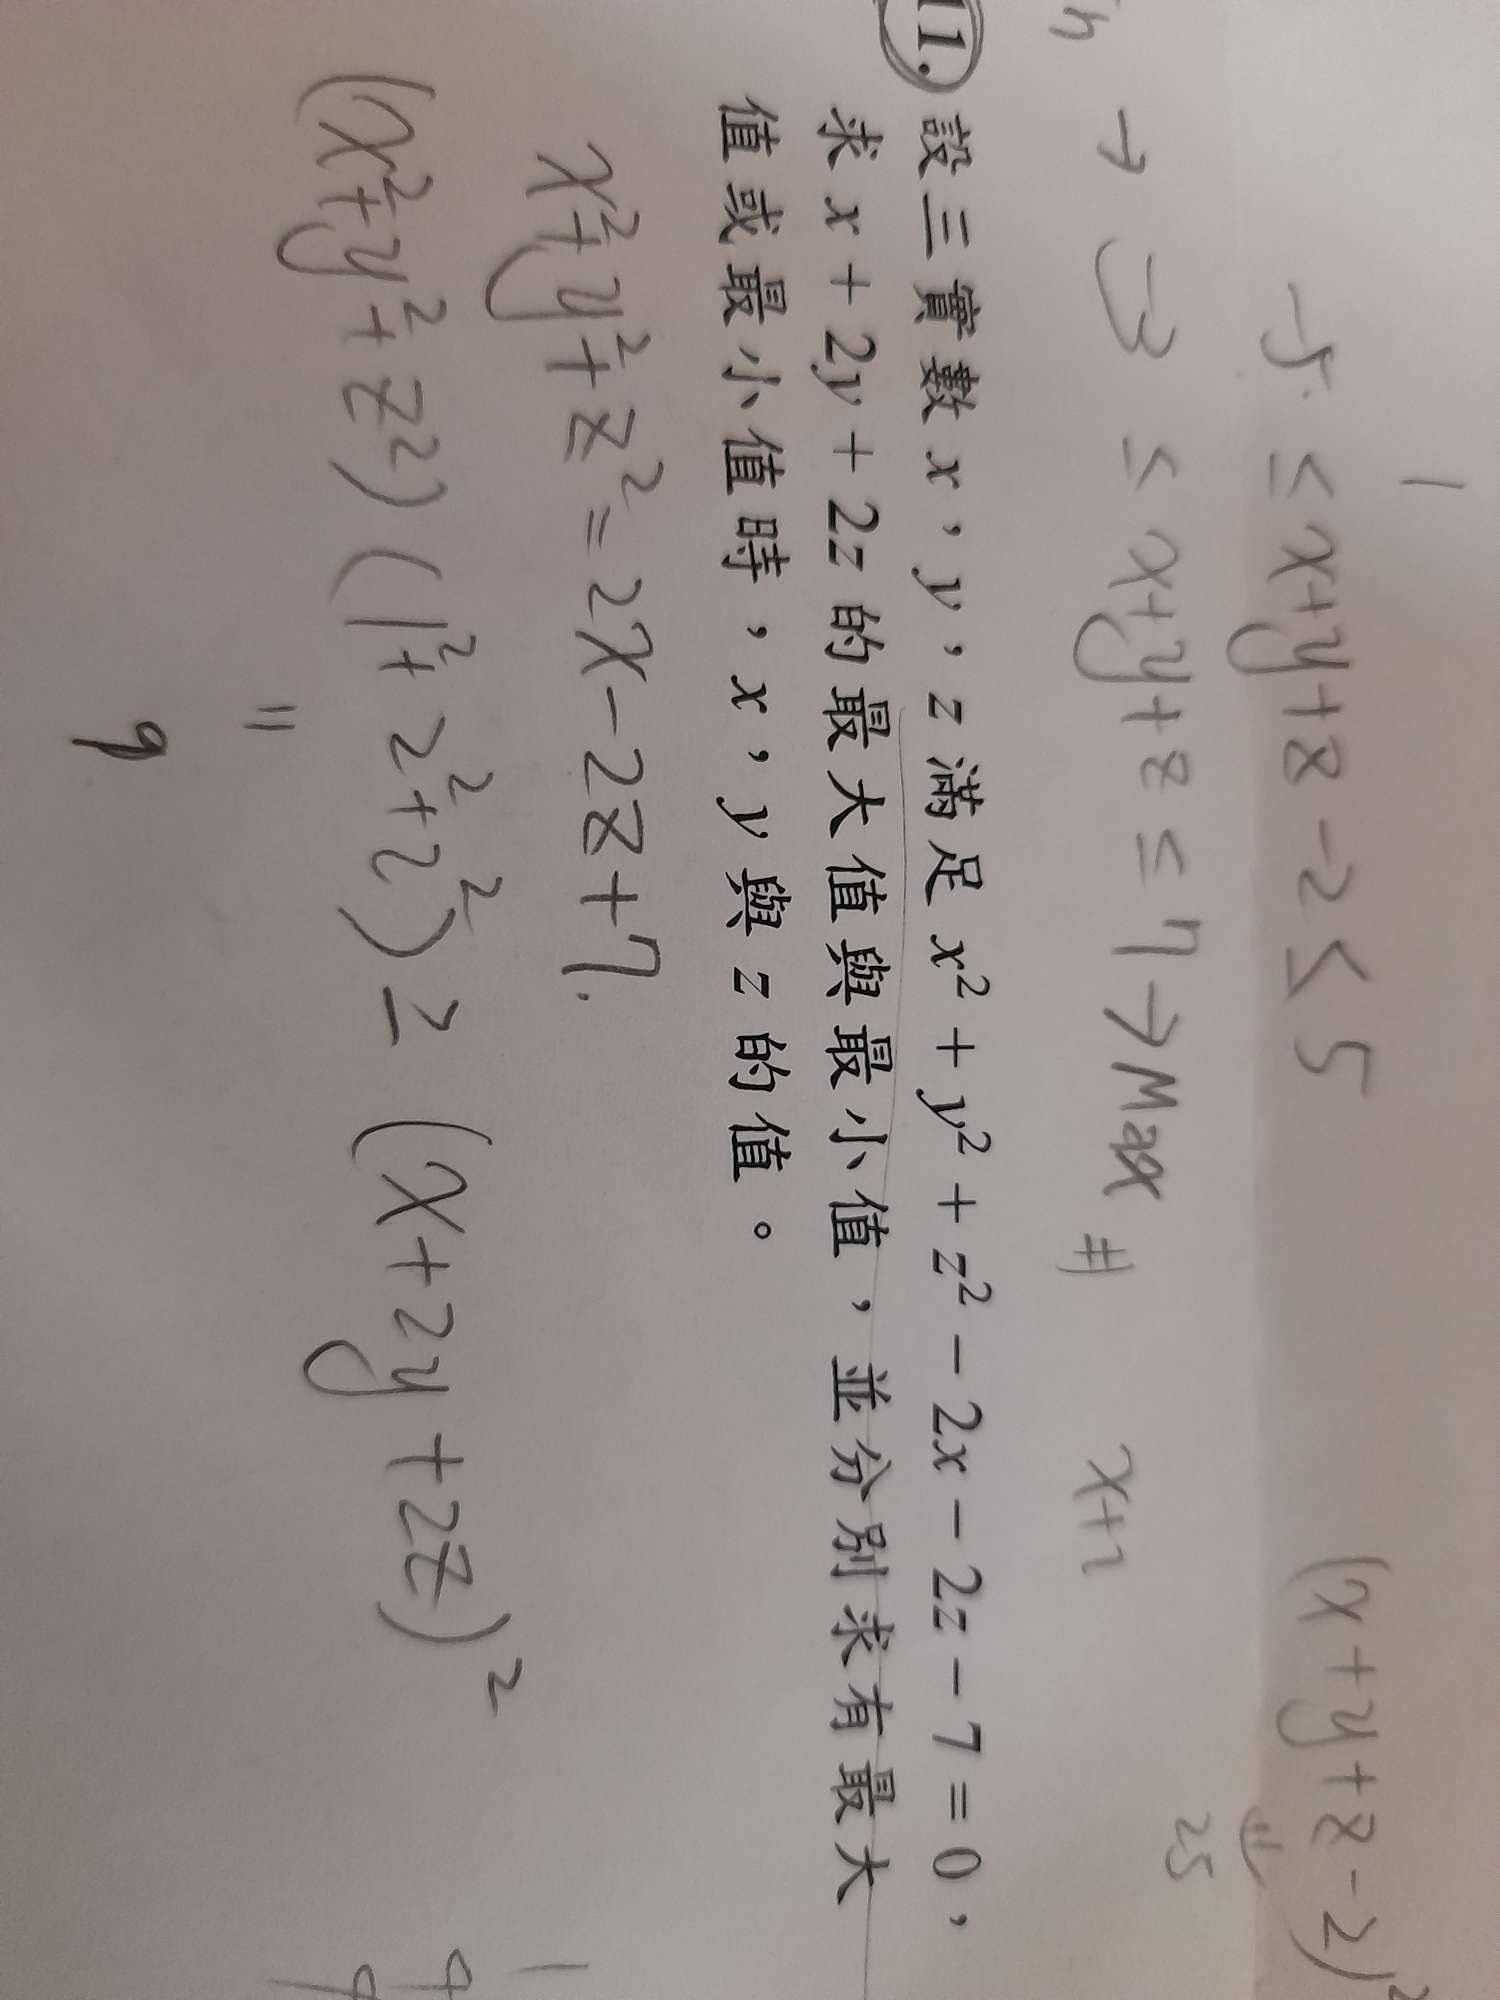 1
-5 ≤ x+y+z-2 ≤ 5
(x+y+z-2)²
25
→ -3 ≤ x+y+z ≤ 7 → Max #
x+2
11. 設三實數 x，y，z 滿足 x² + y² + z² - 2x - 2z - 7 = 0，
求 x + 2y + 2z 的最大值與最小值，並分別求有最大
值或最小值時，x，y 與 z 的值。
x²+y²+z²=2x-2z+7.
(x²+y²+z²)(1²+2²+2²) ≥ (x+2y+2z)²
=
9